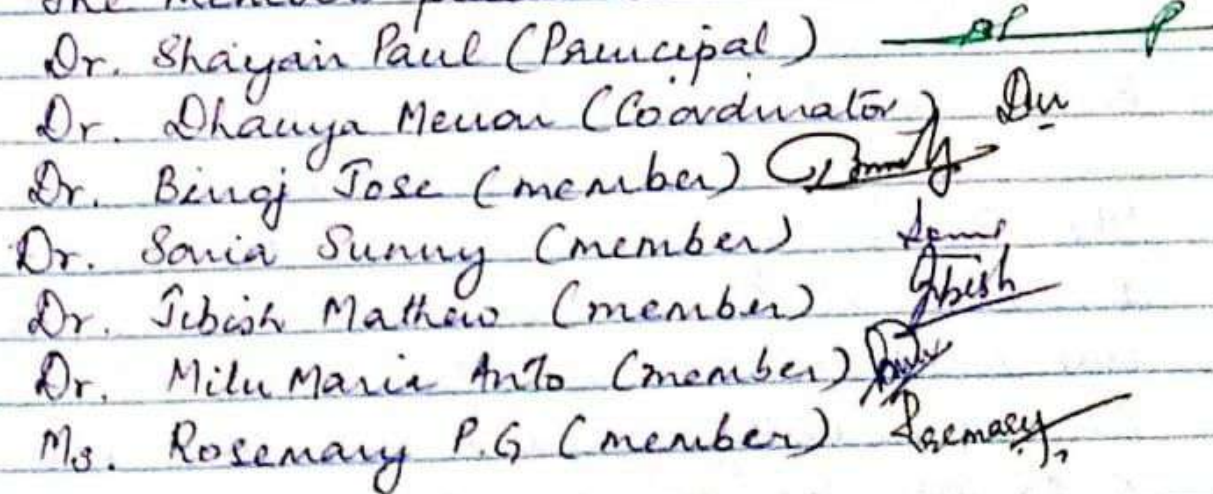 The members
Dr. Shayain Paul (Principal)
Dr. Dhanya Menon (Coordinator)
Dr. Binoj Jose (member)
Dr. Sonia Sunny (member)
Dr. Jibish Mathew (member) Jibish
Dr. Milu Maria Anto (member)
Ms. Rosemary P.G (member) Rosemary